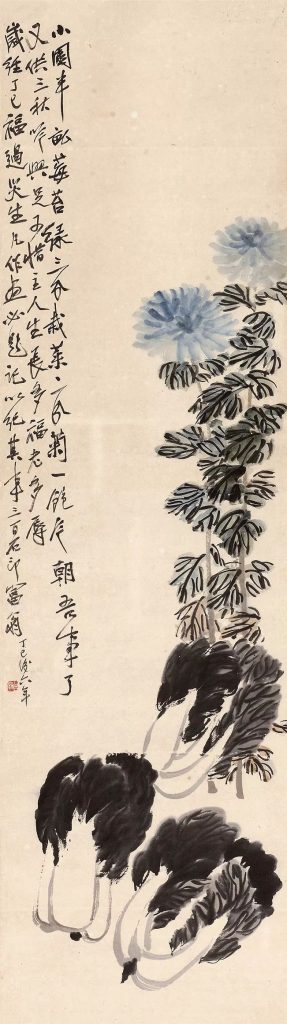 小園半畝莓苔綠三分栽菜二分菊一飽今朝吾事了
又供三秋吟興足可惜主人生長多福老多辱
歲經丁巳福過災生凡作畫必題記以紀其事三百石印富翁
丁巳後六年